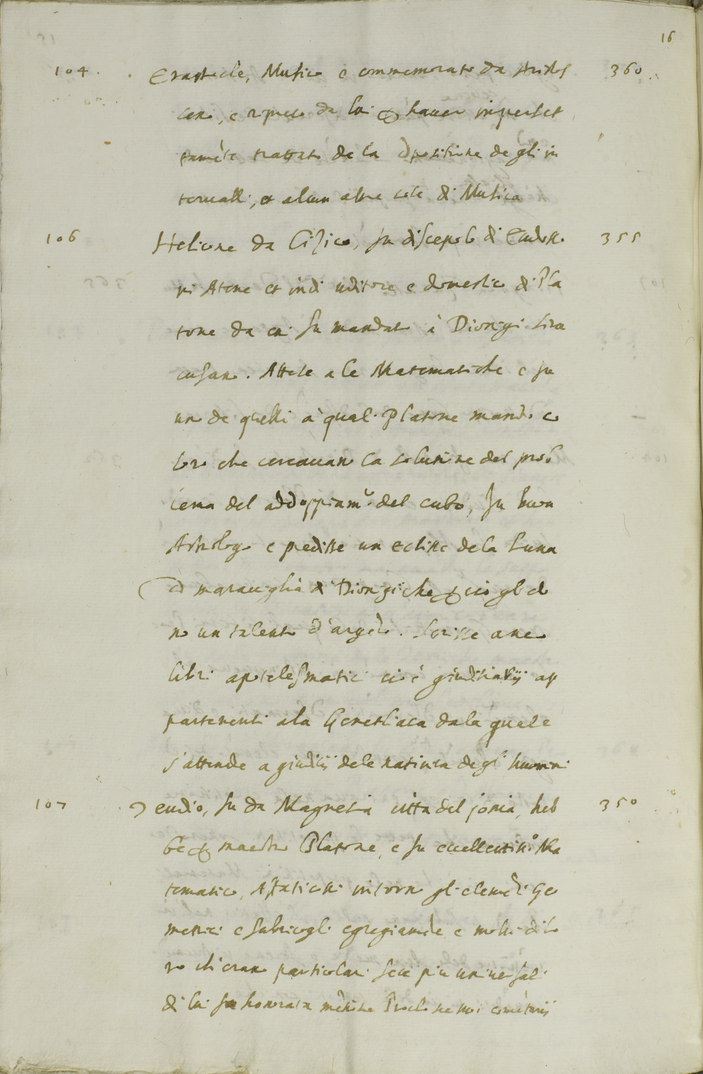 16
104. Erastocle, Musico è commemorato da Aristos 360
ceno, e ripreso da lui per haver imperfet
tamēte trattato de la dispositione degli in
tervalli, et alcun altre cose di Musica
106 Helicone da Cizico, fu discepolo di Eudosso 355
in Atene et indi uditore e domestico di Pla
tone da cui fu mandato à Dionigi Sira
cusano. Attese a le Matematiche e fu
un de quelli a' quali Platone mandò co
loro che cercavan la solutione del prob
lema del addoppiam.to del cubo, fu buon
Astrologo e predisse un eclisse de la Luna
maraviglia Dionigi che per ciò gli do
nò un talento d'argēto. Scrisse anco
libri apotelesmatici cioè giuditiarij ap
partenenti a la Genethliaca da la quale
s'attende a giuditij dele natività degli huomini
107 Teudio, fu da Magnesia città del Jonia, heb 350
be per maestro Platone, e fu eccellentissimo Ma
tematico, Affaticossi intorno gli elemēti Geo
metrici e fabricogli egregiamēte e molti di lo
ro ch'erano particolari fece più universali
di lui fa honorata mētione Proclo ne suoi comētarij